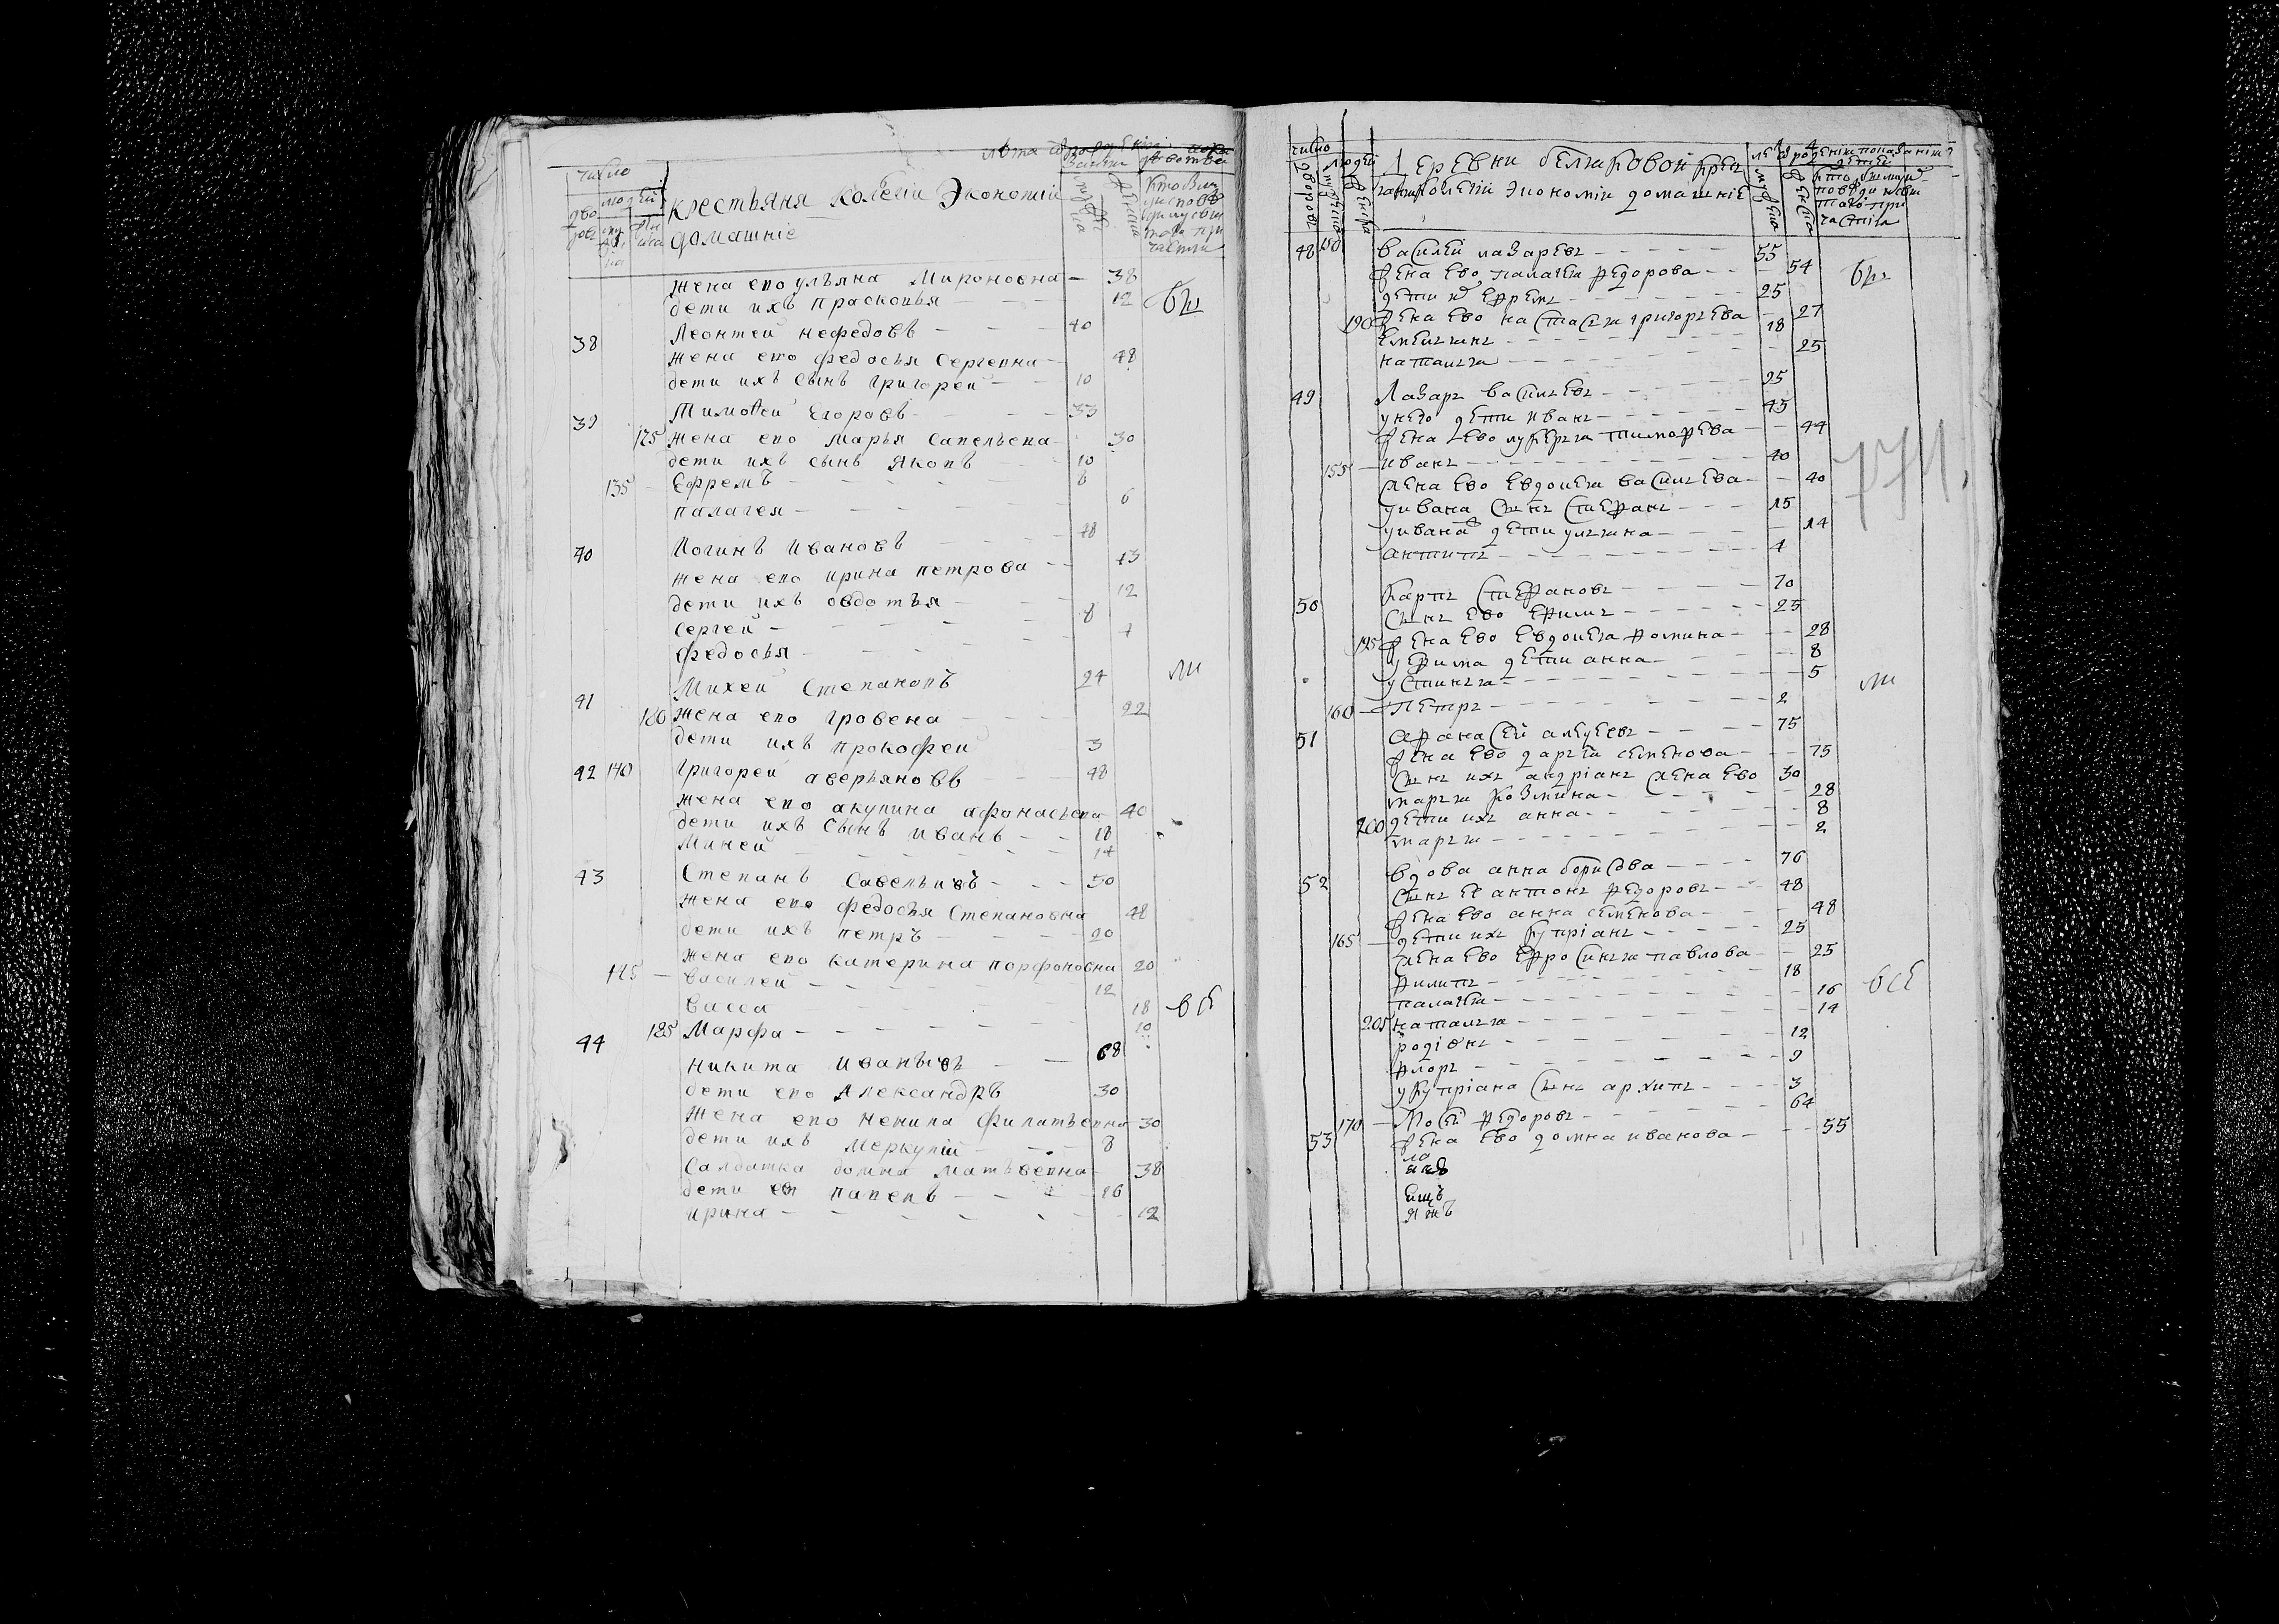 число
лѣта от рожденія
людей
дво
ровъ
Крестьяня Колегіи Экономіи
домашніе
жена ево ульяна Мироновна — 38
дети ихъ прасковья 12
38 Леонтей нефедовъ — 40
жена ево федосья Сергевна — 48
дети ихъ сынъ григорей — 10
39 Тимоѳей Егоровъ — 33
175 жена ево марья савельева 30
дети ихъ сынъ яковъ 10
135 Ефремъ 8
палагея — 6
40 Логинъ ивановъ 48
жена ево ирина петрова — 43
дети ихъ овдотья — 12
Сергей — 8
федосья — 4
41 Михей Степановъ 24
180 жена ево гровена 22
дети ихъ прокофей 3
42 140 Григорей аверьяновъ 48
жена ево акулина афонасьева 40
дети ихъ сынъ иванъ — 18
Миней 14
43 Степанъ савельивъ — 50
жена ево федосья Степановна 48
дети ихъ петръ — 20
жена ево катерина порфоновна 20
145 — василей — 12
васса 18
185 Марфа — 10
44 никита иванывъ — 68
дети ево Александръ 30
жена ево ненила филатьевна 30
дети ихъ меркулій — 8
Салдатка домна матвеевна — 38
дети ея павелъ — 16
ирина — 12
вси
число
людей
дворовъ
Деревни белгаковой крес
тьяня колегіи экономіи домашніе
48 150 василей лазаревъ — 55
жена ево палагея федорова — 54
дети их ефремъ — 25
190 жена ево настасья григорьева 27
емельянъ — 18
наталья — 25
49 Лазарь васильевъ — 95
у него дети иванъ — 45
жена ево лукерья тимофева — 44
155 — иванъ — 40
жена ево евдокея васильева — 40
у ивана сынъ стефанъ — 15
у ивана дети ульяна — 14
антипъ — 4
50 Карпъ стефановъ — 70
сынъ ево ефимъ — 25
195 жена ево евдокея фомина — 28
у ефима дети анна — 8
устинья — 5
160 — петръ — 2
51 афанасей алеуевъ — 75
жена ево дарья семенова — 75
сынъ ихъ андріанъ жена ево 30
марья козмина — 28
200 дети ихъ анна — 8
марья — 2
52 вдова анна борисова — 76
сынъ ея антонъ федоровъ — 48
жена ево анна семенова — 48
165 — дети ихъ купріанъ — 25
жена ево ефросинья павлова — 25
филипъ — 18
палагея — 16
205 наталья — 14
родіонъ — 12
флоръ — 9
у купріана сынъ архипъ — 3
53 170 — Мосей федоровъ — 64
жена ево домна иванова — 55
вси
771.